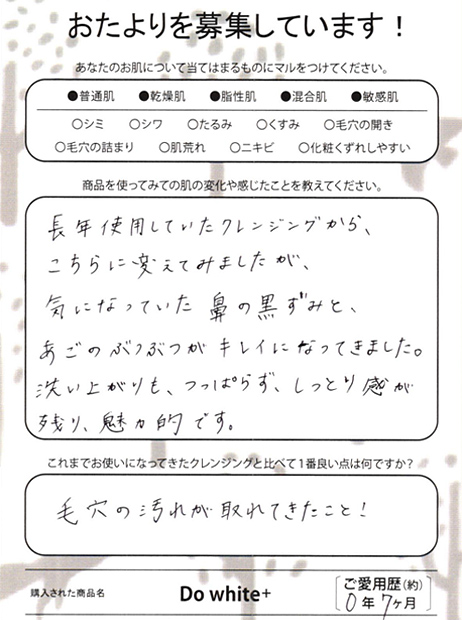 おたよりを募集しています！
あなたのお肌について当てはまるものにマルをつけてください。
●普通肌 ●乾燥肌 ●脂性肌 ●混合肌 ●敏感肌
○シミ ○シワ ○たるみ ○くすみ ○毛穴の開き
○毛穴の詰まり ○肌荒れ ○ニキビ ○化粧くずれしやすい
商品を使ってみての肌の変化や感じたことを教えてください。
長年使用していたクレンジングから、
こちらに変えてみましたが、
気になっていた鼻の黒ずみと、
あごのぶつぶつがキレイになってきました。
洗い上がりも、つっぱらず、しっとり感が
残り、魅力的です。
これまでお使いになってきたクレンジングと比べて1番良い点は何ですか？
毛穴の汚れが取れてきたこと！
購入された商品名 Do white+ ご愛用歴(約)
0年7ヶ月